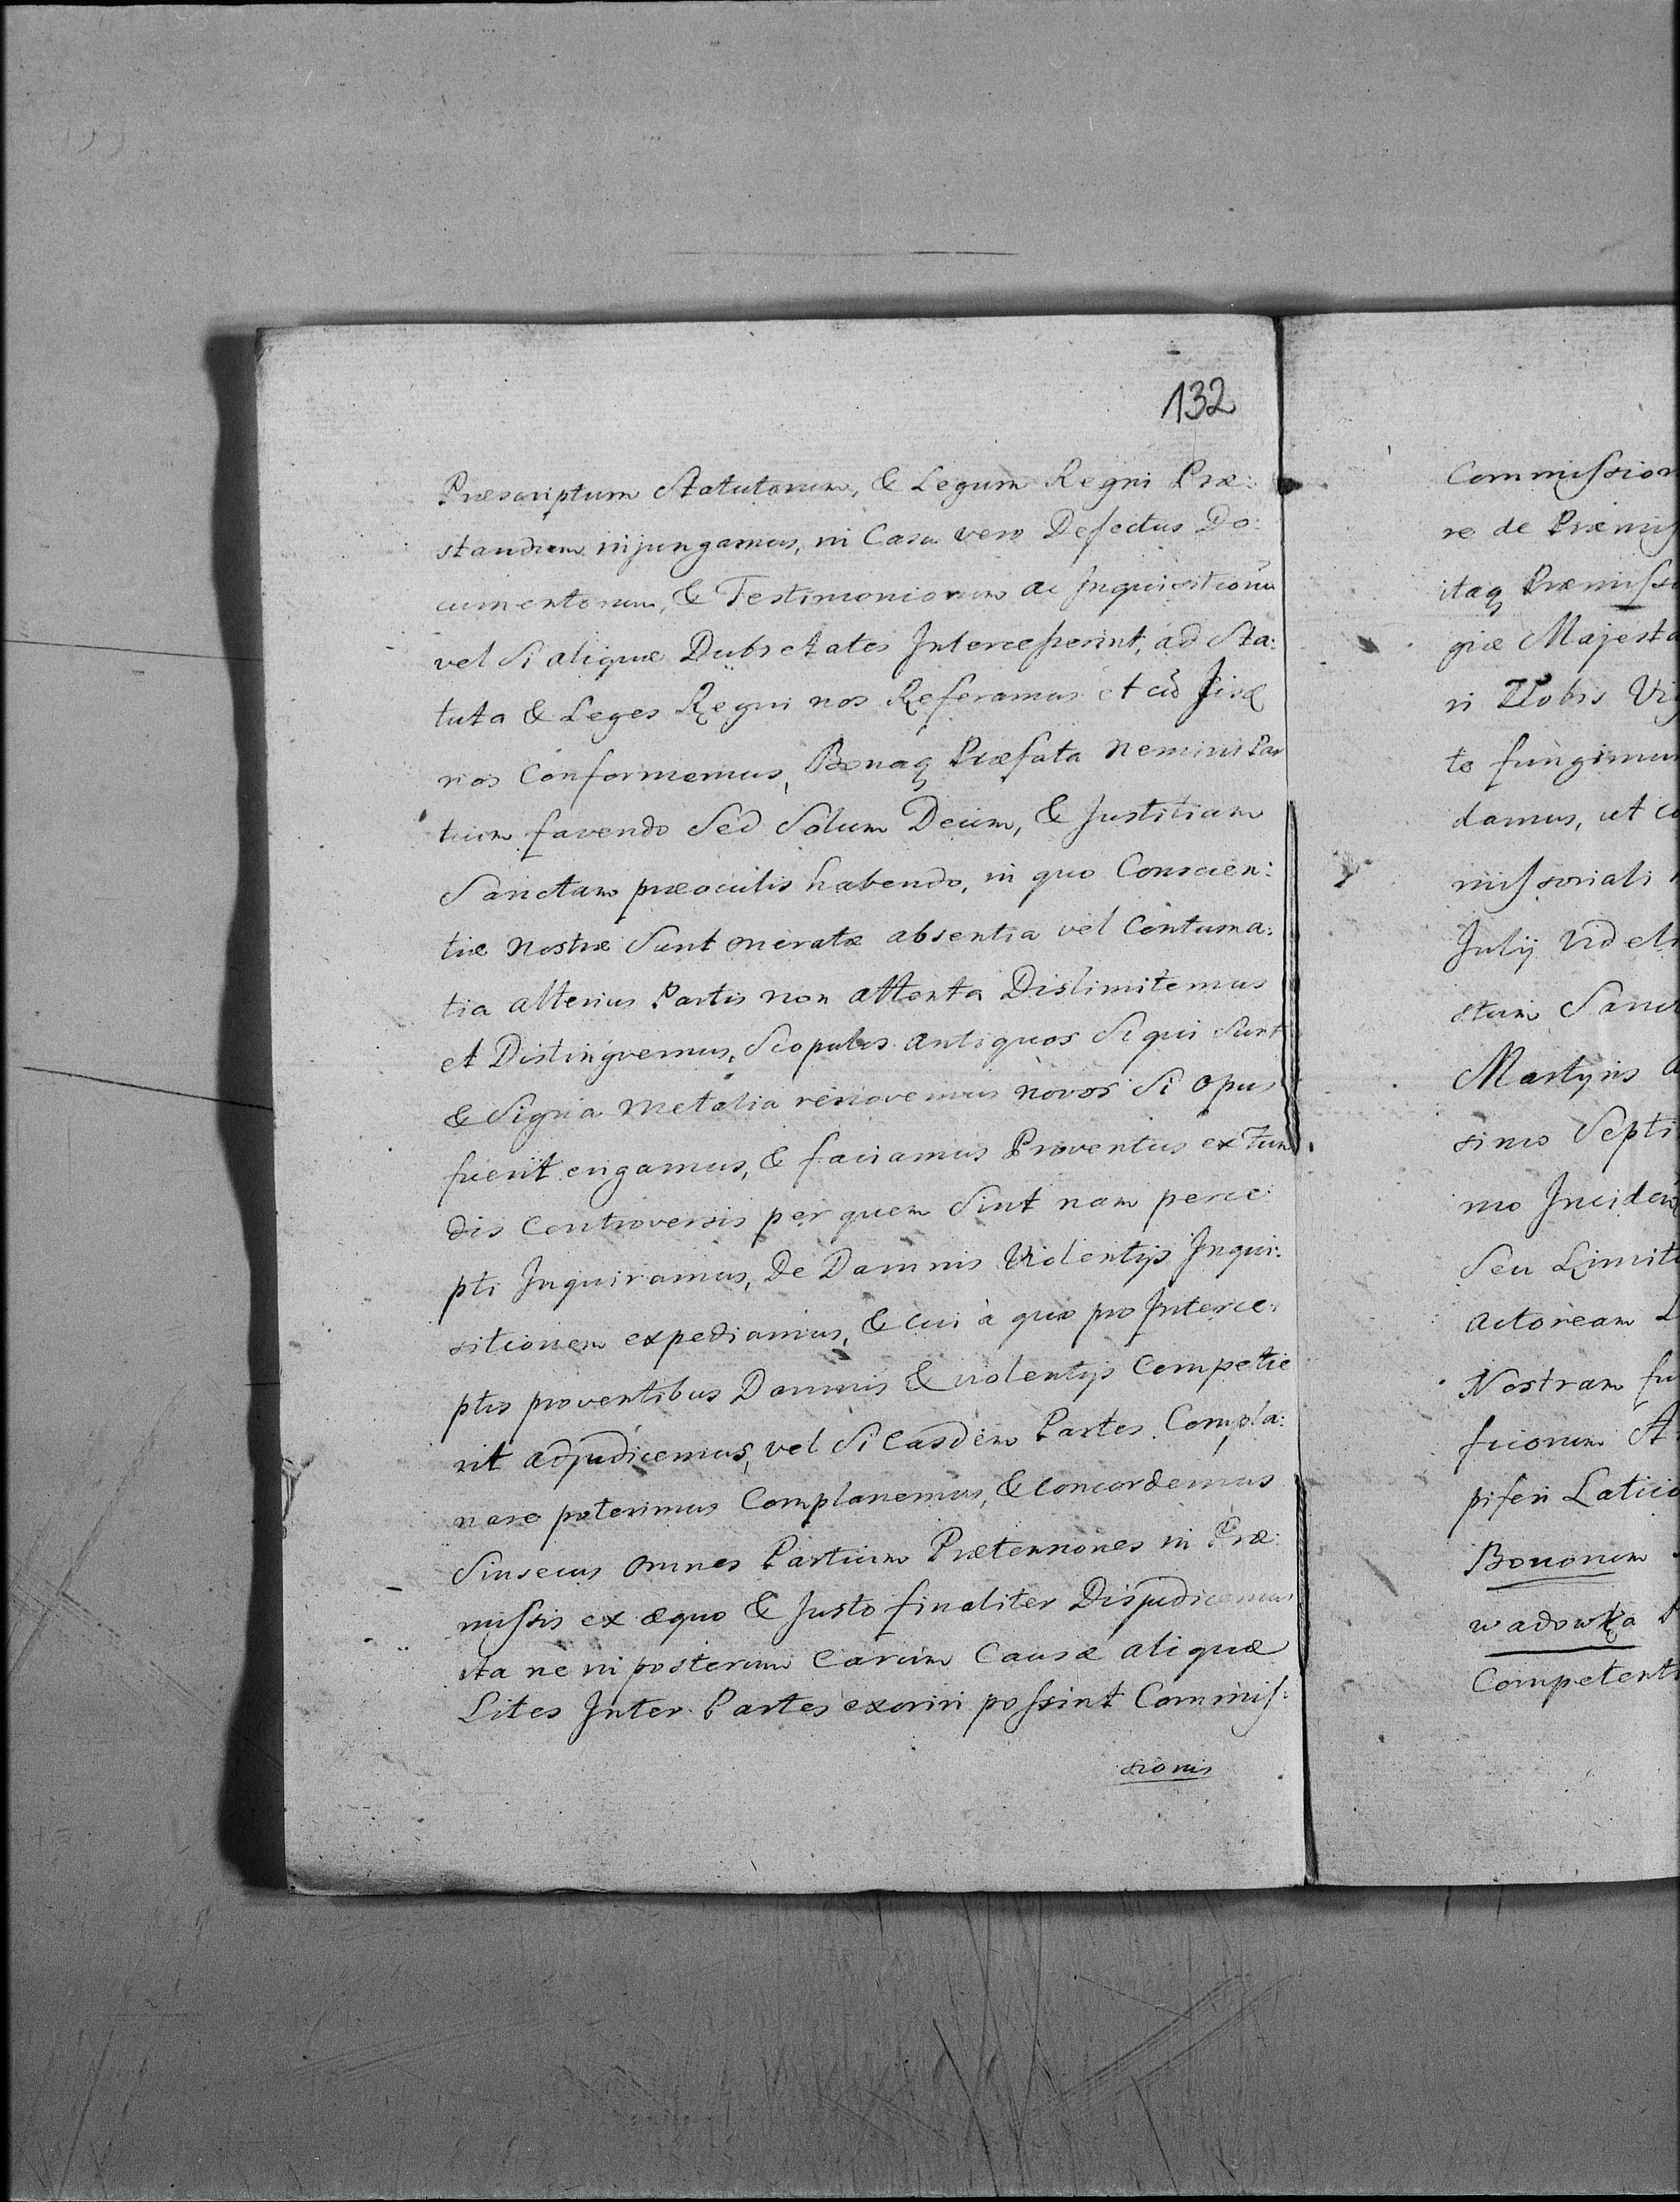 132
Præscriptum Statutorum, & Legum Regni Præ:
standum injungamus, in Casu vero Defectus Do:
cumentorum, & Testimoniorum ac Inquisitionũ
vel Si aliquæ Dubietates Intercesserint, ad Sta:
tuta & Leges Regni nos Referamus et ad
nos Conformemus, Bonaq Præfata nemini Par
tium favendo Sed Solum Deum, & Justitiam
Sanctam præoculis habendo, in quo Conscien:
tiæ Nostræ Sunt oneratæ absentia vel Contuma:
tia alterius Partis non attenta Dislimitemus
et Distinguemus, Scopulos antiquos Si qui Sunt
& Signa Metalia renovemus novos Si opus
fuerit erigamus, & faciamus Proventus ex Fun
dis Controversis per quem Sint nam perce:
pti Inquiramus, De Damnis Violentijs Inqui:
sitionem expediamus, & cui à quo pro Interce:
ptis proventibus Damnis & violentijs Competie
rit adjudicemus, vel Si easdem Partes Compla:
nare poterimus Complanemus, & Concordemus
Sinsecus omnes Partium Prætensiones in Præ:
missis ex æquo & Justo finaliter Disjudicemus
ita ne in posterum earum Causæ aliquæ
Lites Inter Partes exoriri possint Commis:
sionis
Commission
re de Præmis
itaq Præmisso
giæ Majesta
ri Nobis Vi
te fungimur
damus, ut co
missoriali
Julij Videli
stum Sanct
Martyris a
simo Septi
mo Inciden
Seu Limit
Actoream L
Nostram fu
ficorum A
piferi Latic
Bonorum
wadowka
Competenti